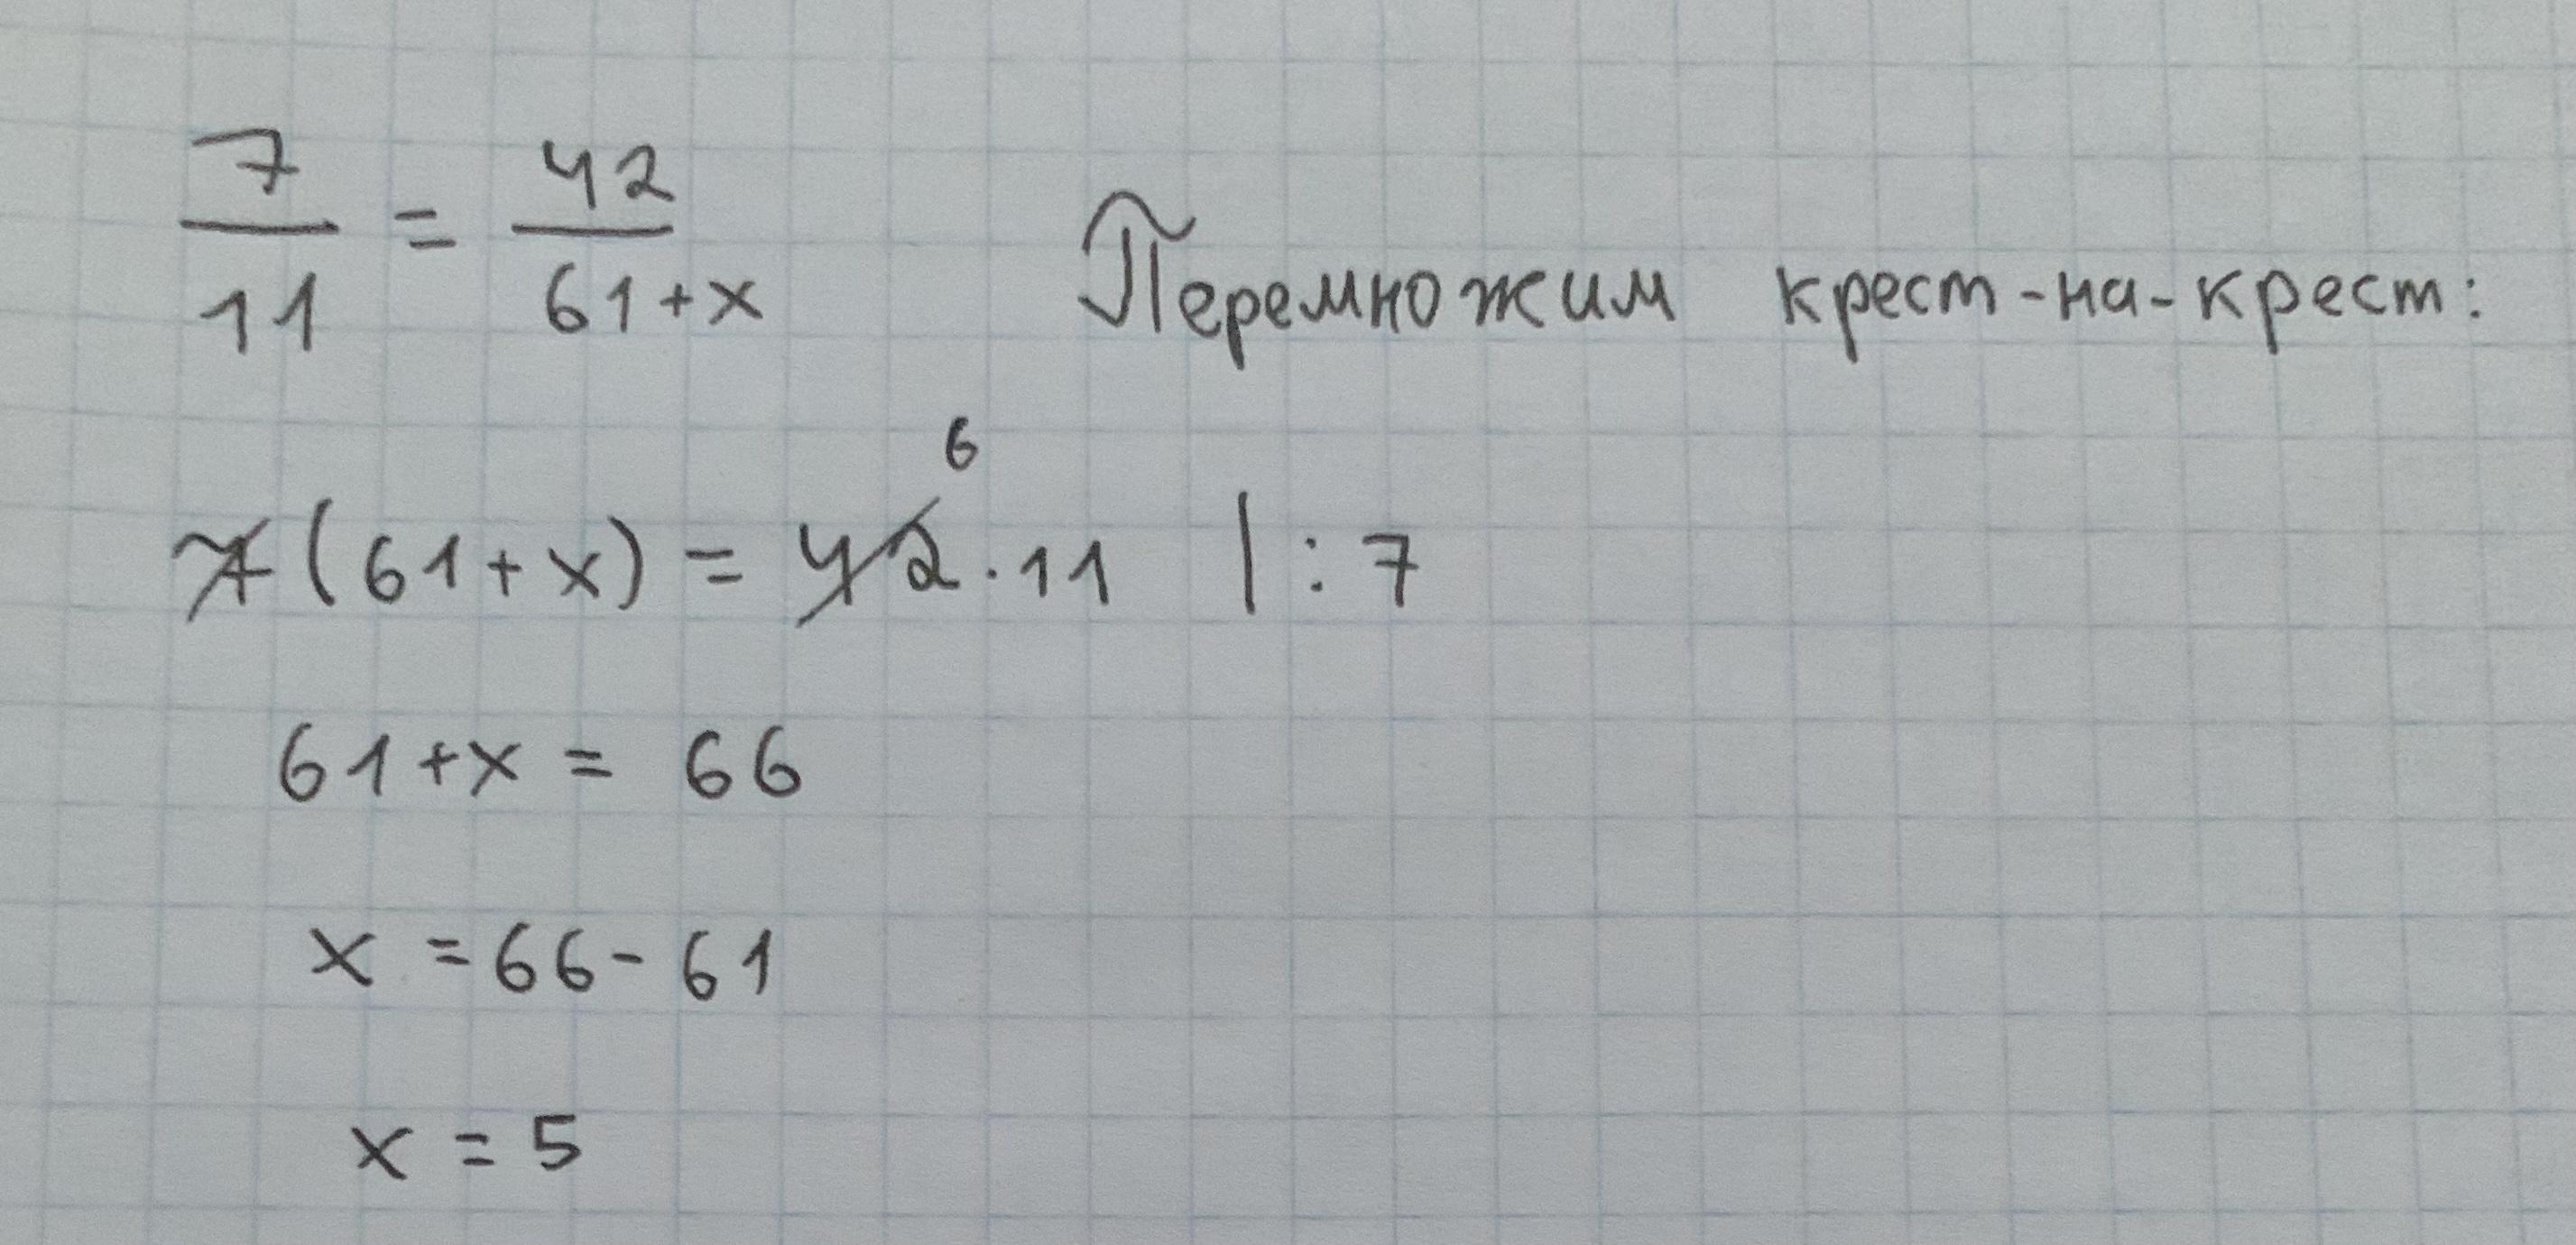 7/11 = 42/(61+x) Перемножим крест-на-крест:
7(61+x) = 42·11 |:7
6
61+x = 66
x = 66-61
x = 5